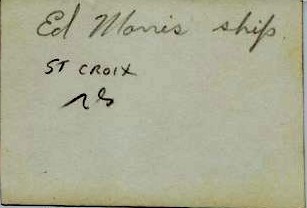 Ed Morris ship.
ST CROIX